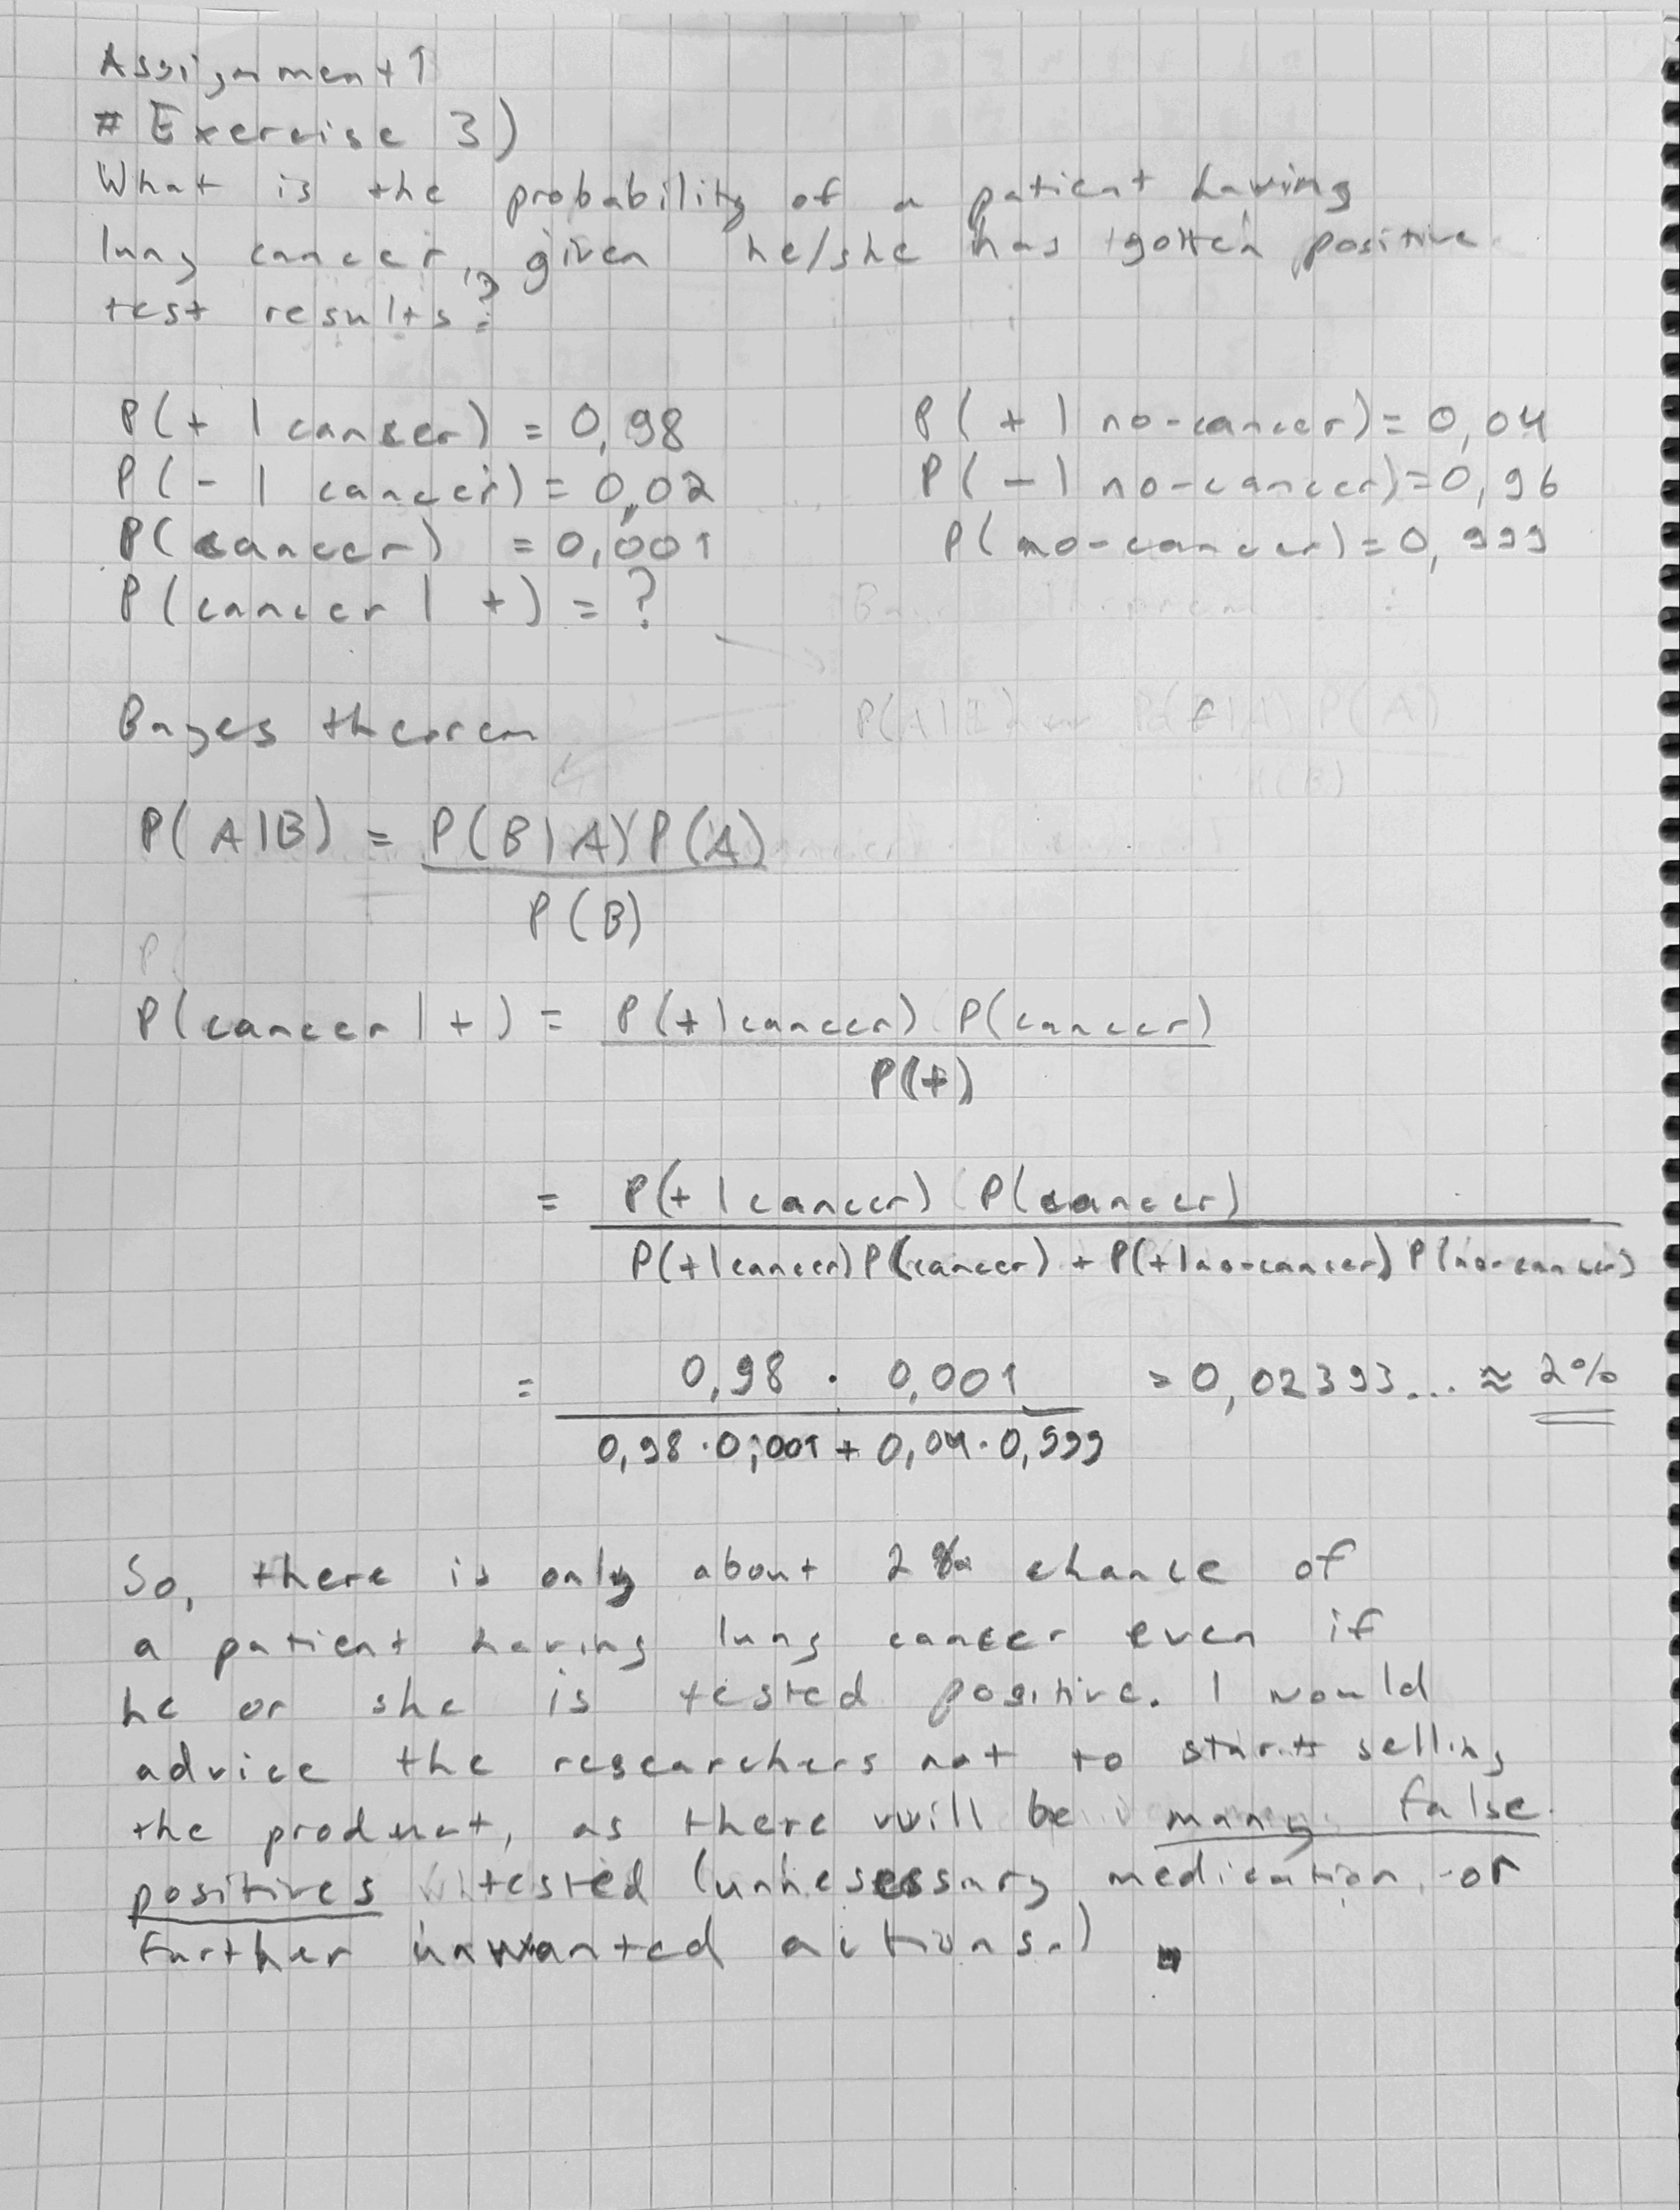 Assignment 1
# Exercise 3)
What is the probability of a patient having
lung cancer, given he/she has gotten positive
test results?
P(+ | cancer) = 0,98 P(+ | no-cancer) = 0,04
P(- | cancer) = 0,02 P(- | no-cancer) = 0,96
P(cancer) = 0,001 P(no-cancer) = 0,999
P(cancer | +) = ?
Bayes theorem
P(A|B) = P(B|A)P(A)
P(B)
P(cancer | +) = P(+|cancer) P(cancer)
P(+)
= P(+|cancer) P(cancer)
P(+|cancer)P(cancer) + P(+|no-cancer) P(no-cancer)
= 0,98 · 0,001 = 0,02393... ≈ 2%
0,98 · 0,001 + 0,04 · 0,999
So, there is only about 2% chance of
a patient having lung cancer even if
he or she is tested positive. I would
advice the researchers not to start selling
the product, as there will be many false
positives tested (unnesessary medication or
further unwanted actions.)